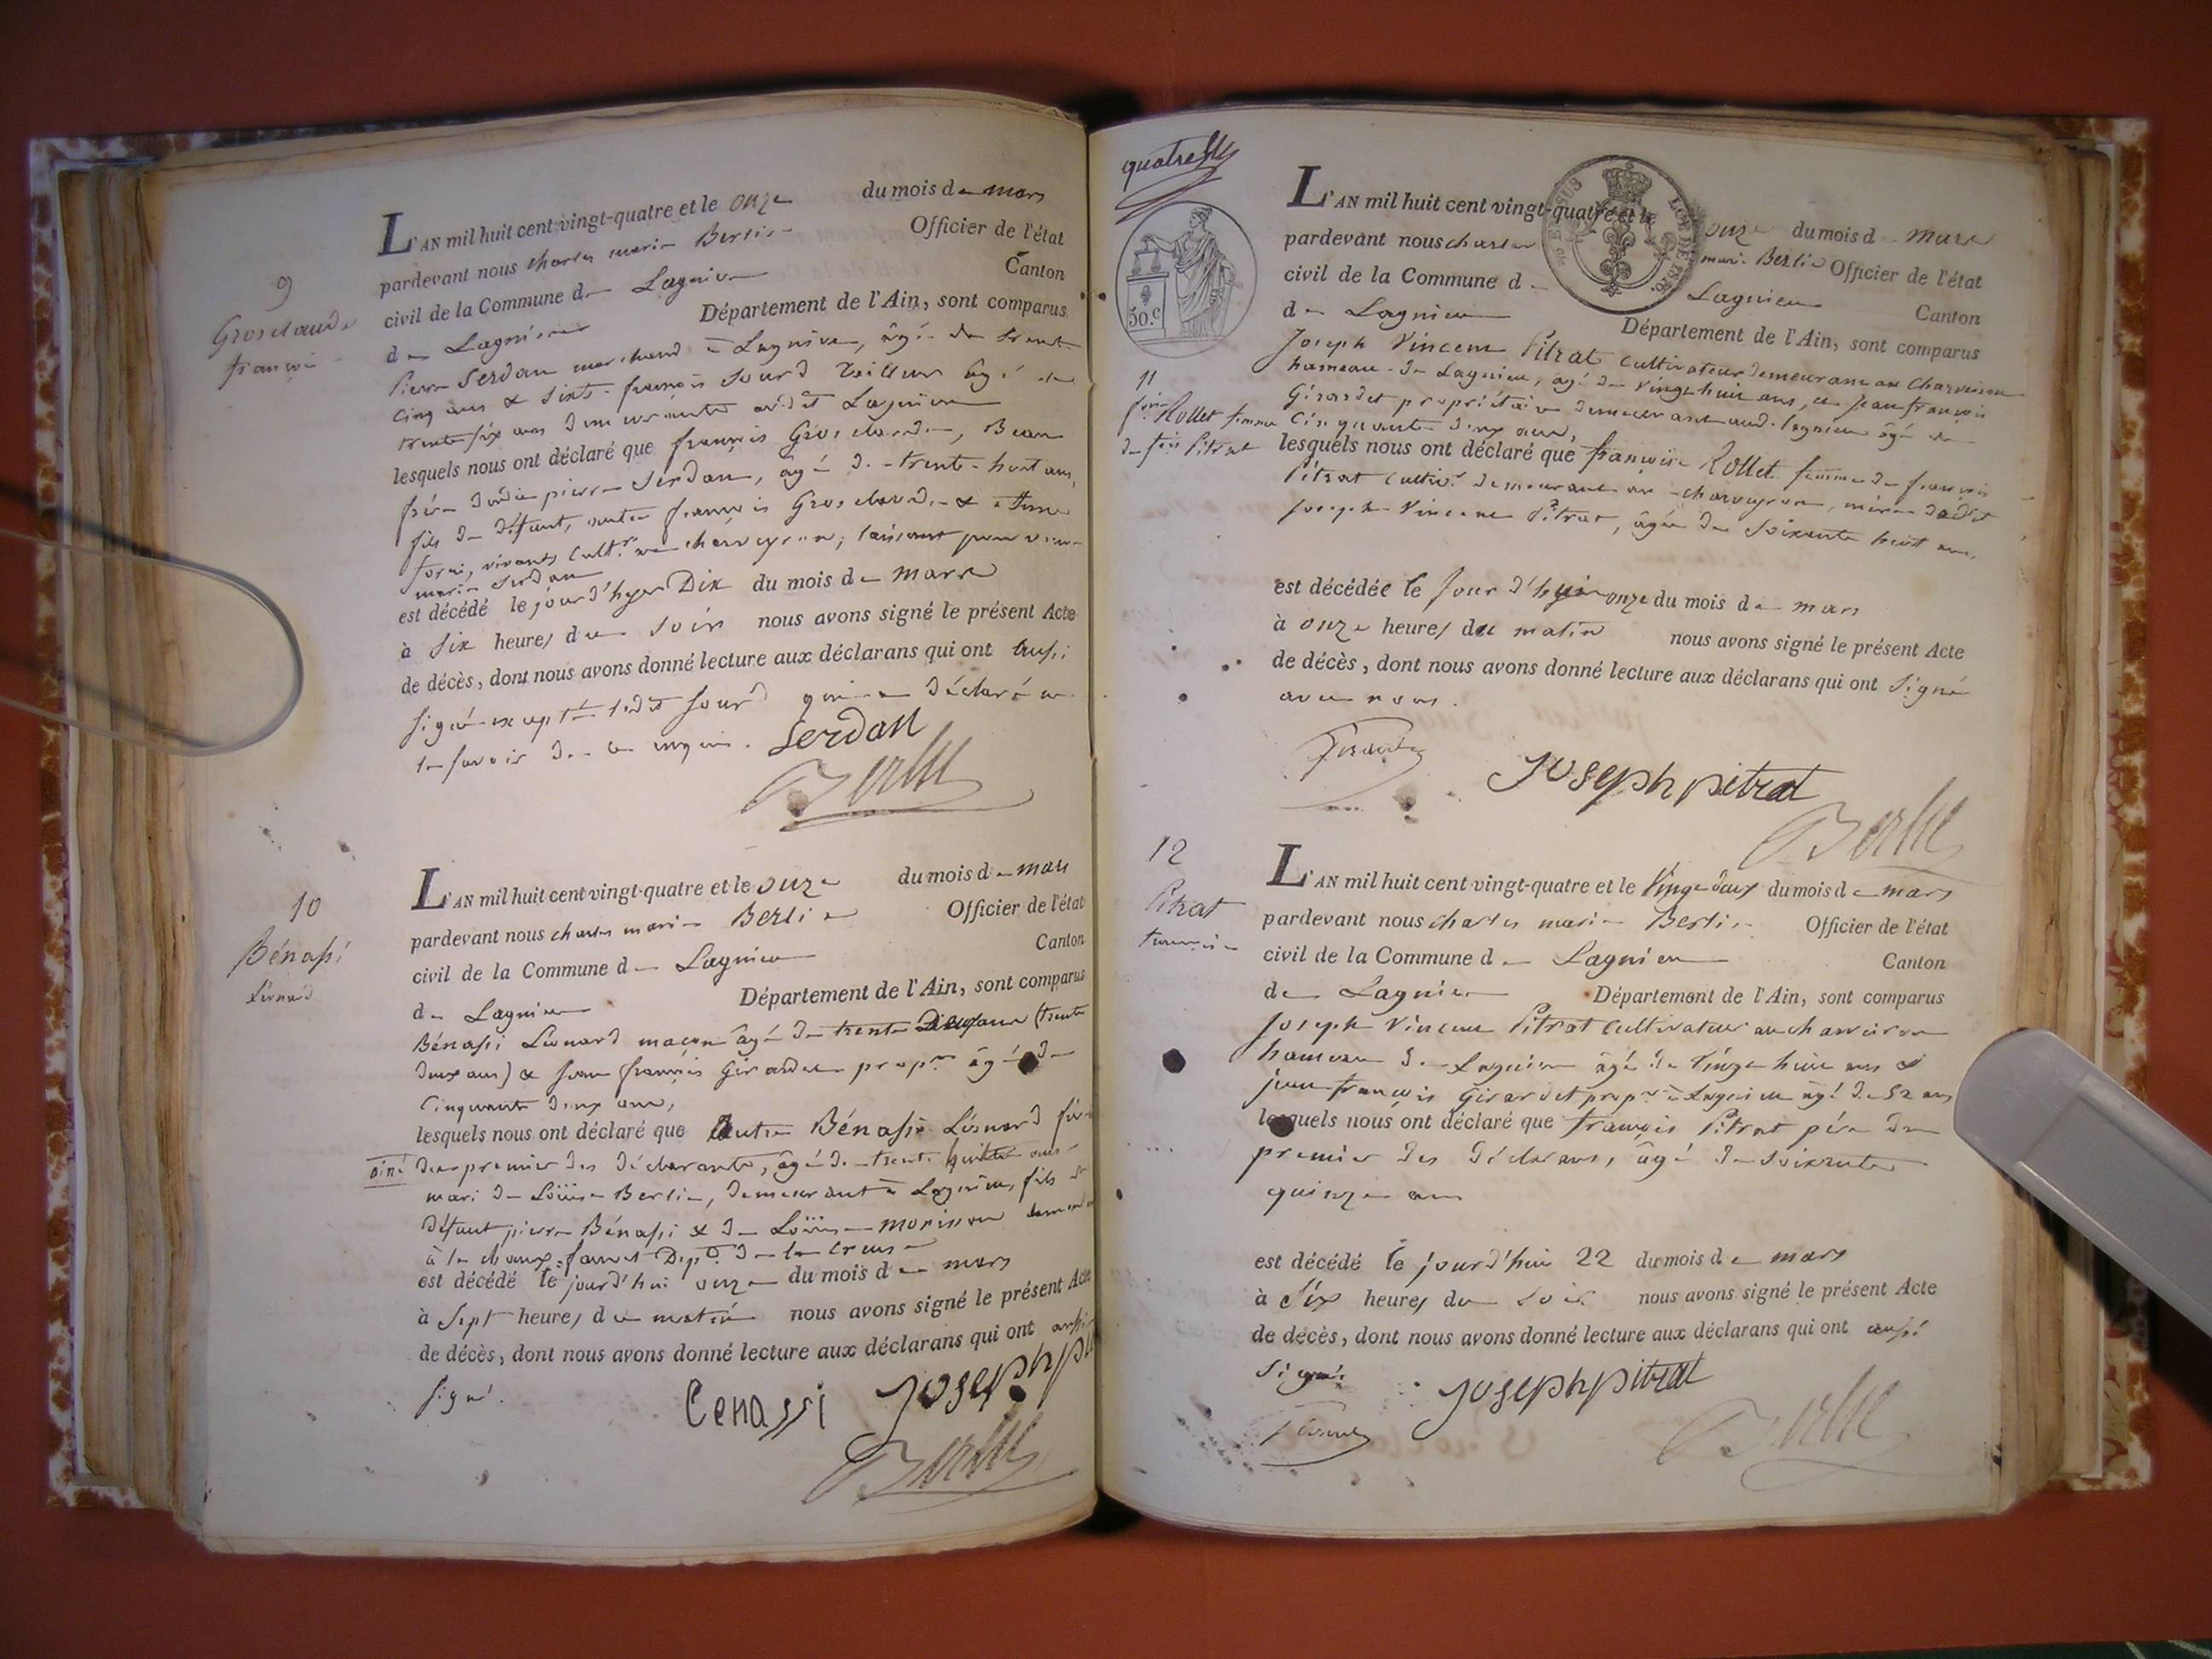 9
Grosclaude
françois
L'AN mil huit cent vingt-quatre et le onze du mois de mars
pardevant nous charles marie Berlie Officier de l'état
civil de la Commune de Lagnieu Canton
de Lagnieu Département de l'Ain, sont comparus
Pierre Serdan marchand à Lagnieu, âgé de trente
cinq ans & françois Sourd tailleur âgé de
trente six ans demeurants audit Lagnieu
lesquels nous ont déclaré que françois Grosclaude, Beau
frère dudit pierre Serdan, âgé de trente-huit ans,
fils de défunt, autre françois Grosclaude &
vivants cult.rs au charveyron, laissant pour veuve
marie Serdan
est décédé le jour d'hyer Dix du mois de mars
à Six heures du soir nous avons signé le présent Acte
de décès, dont nous avons donné lecture aux déclarans qui ont aussi
signé excepté ledit Sourd qui a déclaré ne
le savoir de ce enquis. Serdan
Berlie
10
Bénassi
Léonard
L'AN mil huit cent vingt-quatre et le onze du mois de mars
pardevant nous charles marie Berlie Officier de l'état
civil de la Commune de Lagnieu Canton
de Lagnieu Département de l'Ain, sont comparus
Bénassi Léonard maçon âgé de trente Deux ans (trente
deux ans) & jean françois Girardet prop.re âgé de
Cinquante deux ans,
lesquels nous ont déclaré que Autre Bénassi Léonard frère
ainé du premier des déclarants, âgé de trente huit ans
mari de Loüise Berlie, demeurant à Lagnieu, fils de
défunt pierre Bénassi & de Loüise morisson
à la Dep.t de la Creuse
est décédé le jourd'hui onze du mois de mars
à Sept heures du matin nous avons signé le présent Acte
de décès, dont nous avons donné lecture aux déclarans qui ont aussi
signé.
Cenassi Joseph pi
Berlie
quatre
30.c
11
f.oise Rollet femme
de f.ois Pitrat
L'AN mil huit cent vingt-quatre et le onze du mois de mars
pardevant nous charles marie Berlie Officier de l'état
civil de la Commune de Lagnieu Canton
de Lagnieu Département de l'Ain, sont comparus
Joseph Vincent Pitrat cultivateur demeurant au Charveiron
hameau de Lagnieu, âgé de vingt huit ans, et jean françois
Girardet propriétaire demeurant aud. Lagnieu âgé de
Cinquante deux ans,
lesquels nous ont déclaré que françoise Rollet femme de françois
Pitrat cultiv.r demeurant au charveyron, mère dudit
Joseph Vincent Pitrat, âgée de soixante huit ans,
est décédée le jour d'hyui onze du mois de mars
à onze heures du matin nous avons signé le présent Acte
de décès, dont nous avons donné lecture aux déclarans qui ont signé
avec nous.
Joseph pitrat
Berlie
12
Pitrat
françois
L'AN mil huit cent vingt-quatre et le vingt deux du mois de mars
pardevant nous charles marie Berlie Officier de l'état
civil de la Commune de Lagnieu Canton
de Lagnieu Département de l'Ain, sont comparus
Joseph Vincent Pitrat cultivateur au charveiron
hameau de Lagnieu âgé de vingt huit ans &
jean françois Girardet prop.re à Lagnieu âgé de 52 ans
lesquels nous ont déclaré que françois Pitrat père du
premier des déclarans, âgé de soixante
quinze ans
est décédé le jourd'hui 22 du mois de mars
à Six heures du soir nous avons signé le présent Acte
de décès, dont nous avons donné lecture aux déclarans qui ont aussi
signé.
Joseph pitrat
Berlie